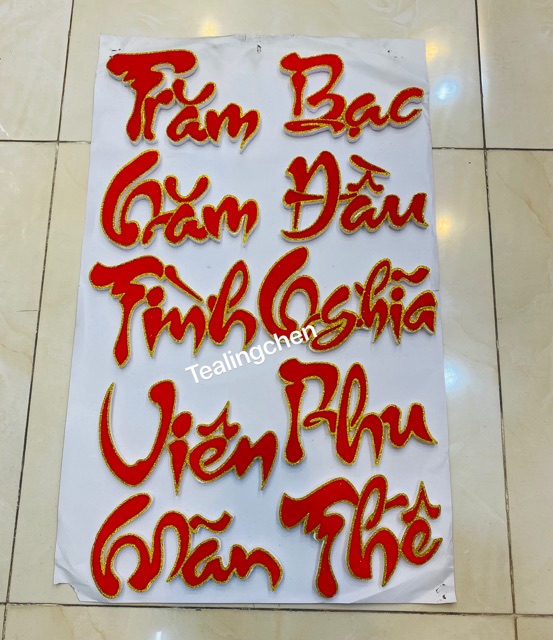 Trăm
Năm
Tình
Viên
Mãn
Bạc
Đầu
Nghĩa
Phu
Thê
Tealingchen